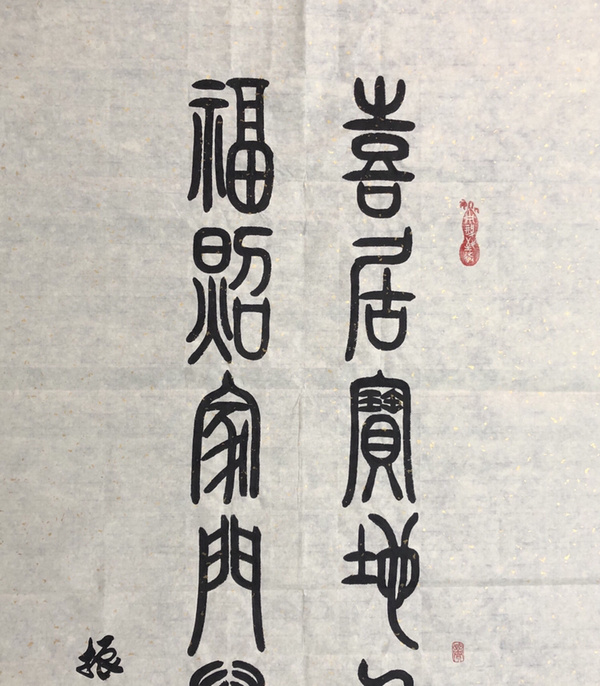 喜居寶地
福照家門
振